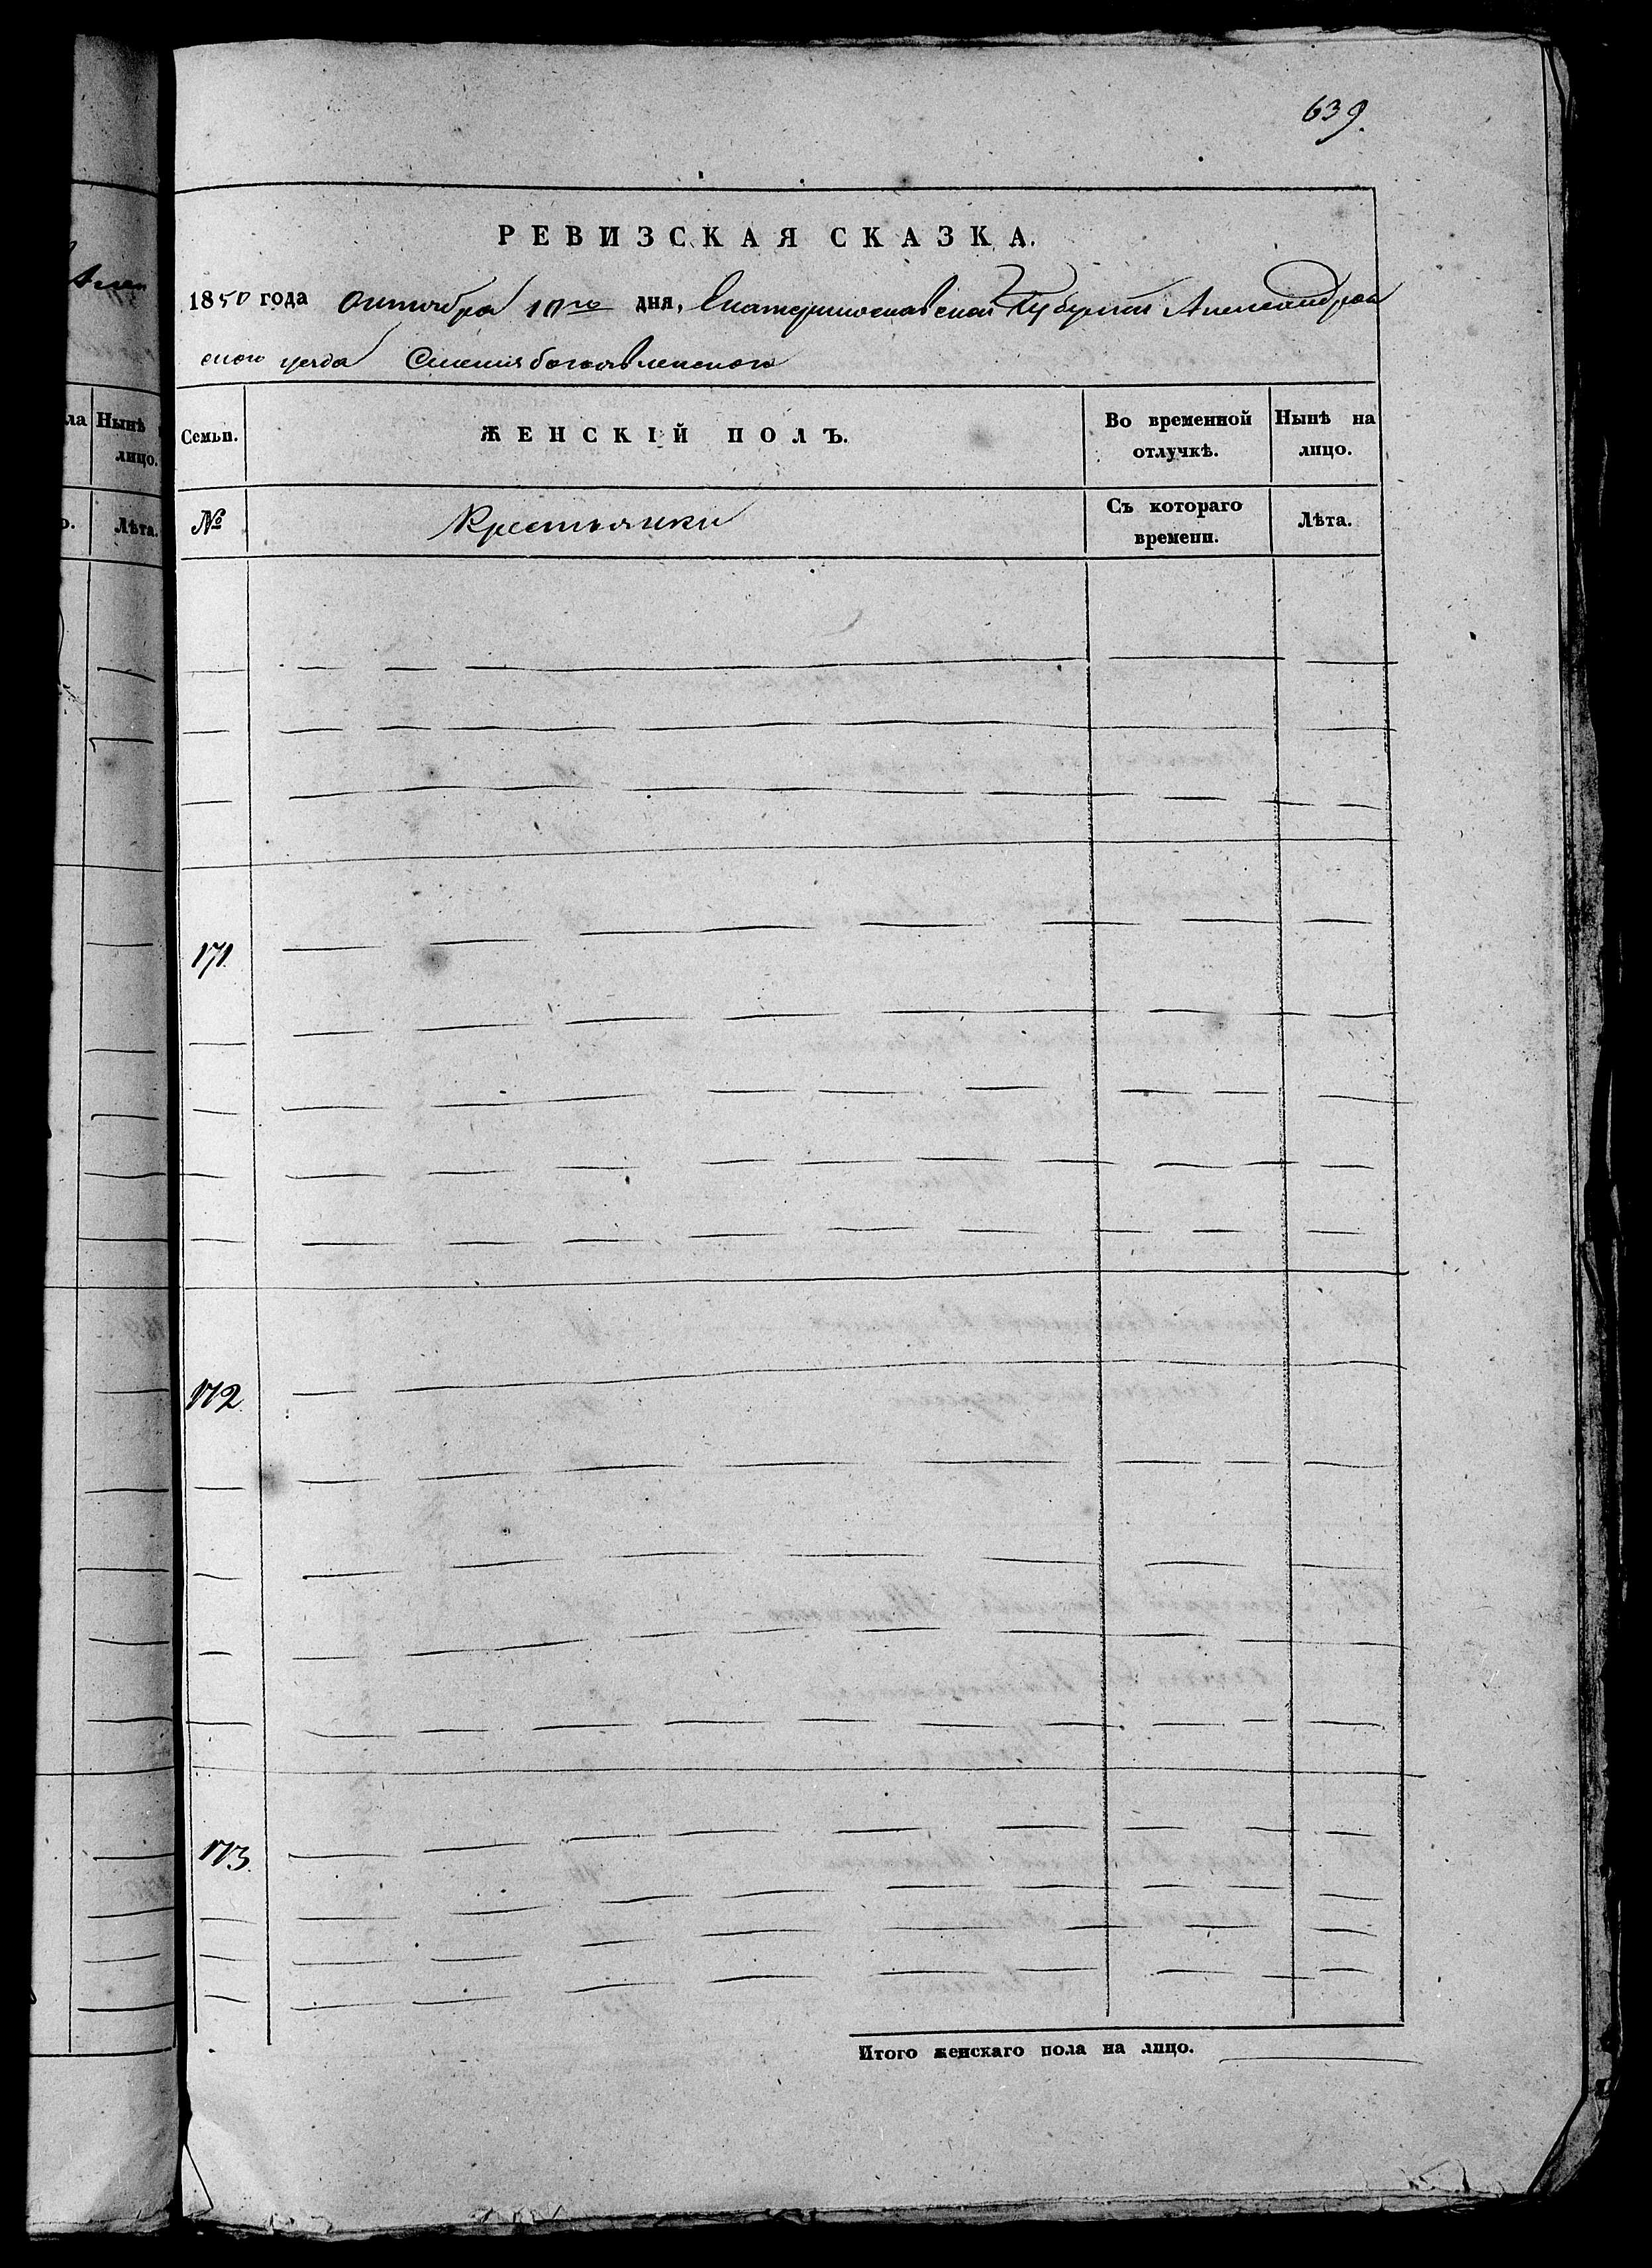 639.
РЕВИЗСКАЯ СКАЗКА.
1850 года Октября 10го дня, Екатеринославской Губернии Александров
ского уезда Селения богоявленского
Семьи.
ЖЕНСКІЙ ПОЛЪ.
Во временной отлучкѣ.
Нынѣ на лицо.
№
Крестьянки
Съ котораго времени.
Лѣта.
171.
172.
173.
Итого женскаго пола на лицо.